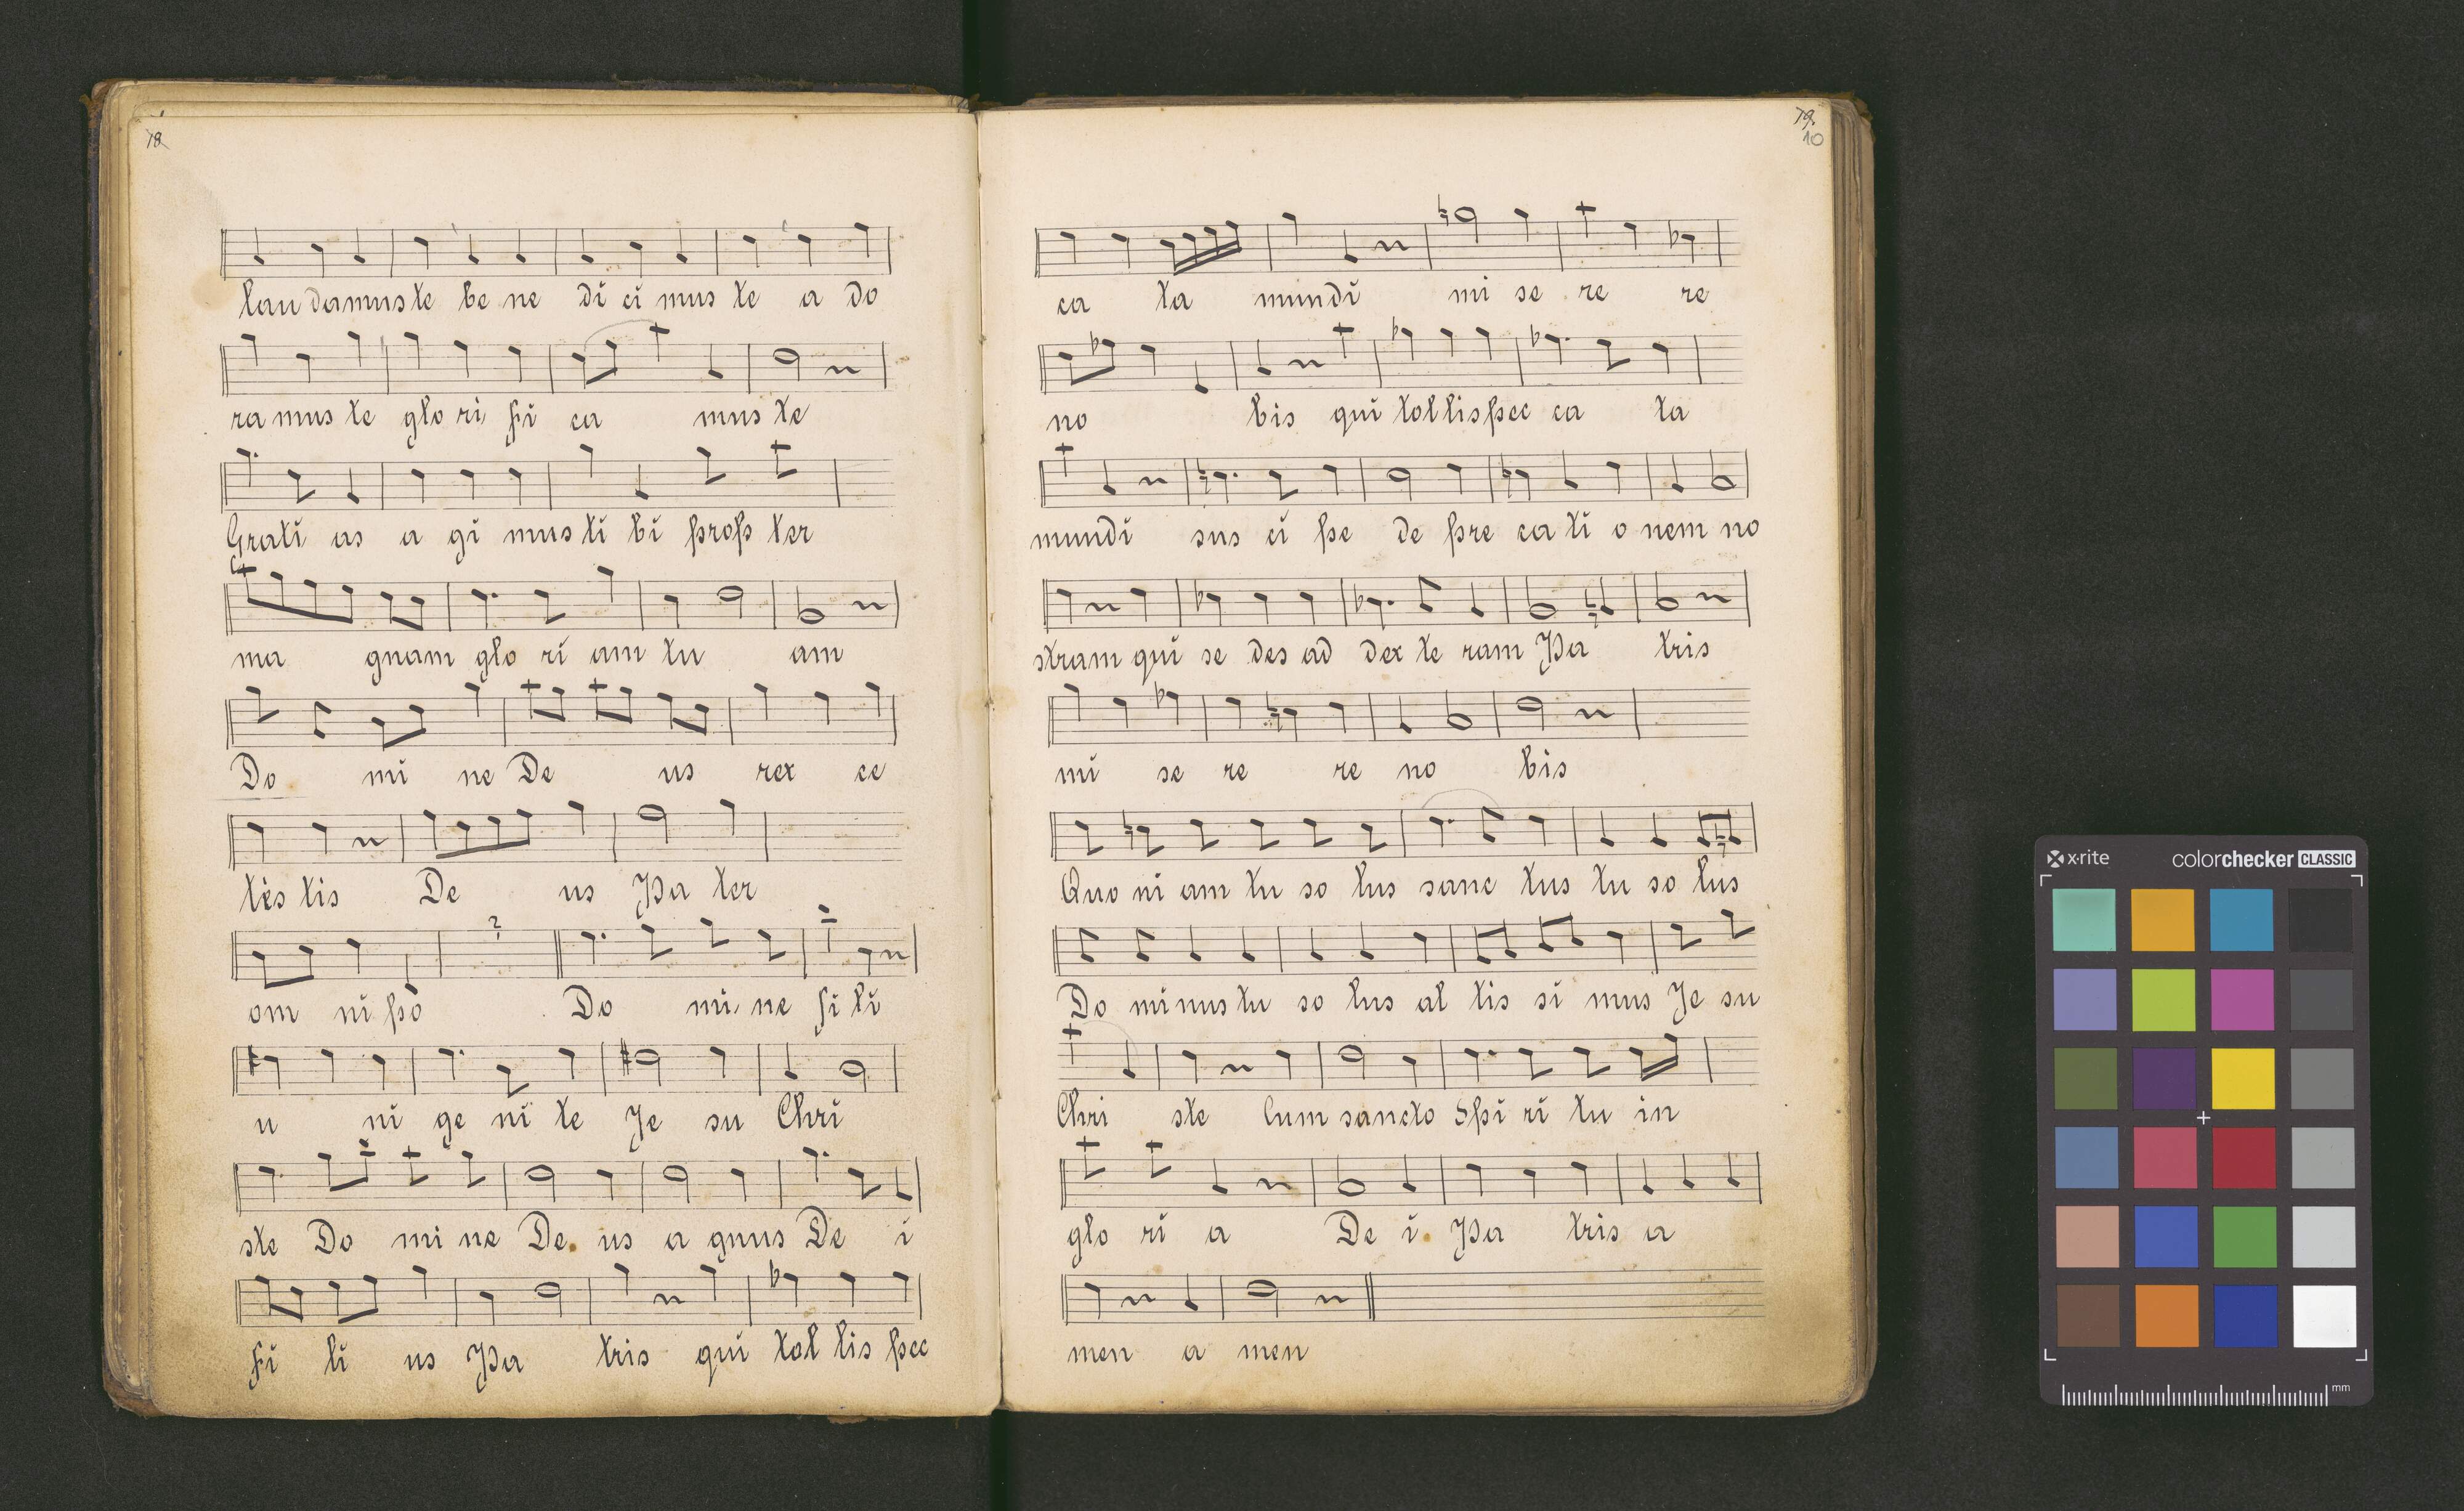 18
lau damus te be ne di ci mus te a do
ra mus te glo ri fi ca mus te
Grati as a gi mus ti bi prop ter
ma gnam glo ri am tu am
Do mi ne De us rex ce
les tis De us Pa ter
?
om ni po Do mi ne fi li
u ni ge ni te Je su Chri
ste Do mi ne De us a gnus De i
fi li us Pa tris qui tol lis pec
79.
10
ca ta mundi mi se re re
no bis qui tol lis pec ca ta
mundi sus ci pe de pre ca ti o nem no
stram qui se des ad dex te ram Pa tris
mi se re re no bis
Quo ni am tu so lus sanc tus tu so lus
Do mi nus tu so lus al tis si mus Je su
Chri ste Cum sancto Spi ri tu in
glo ri a De i Pa tris a
men a men
x·rite colorchecker CLASSIC
mm